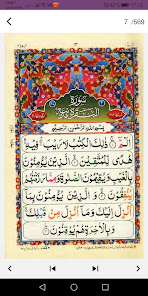 7 /569
سُورَةُ
بِسْمِ اللهِ الرَّحْمٰنِ الرَّحِيْمِ
الٓمّٓ ۚ ذٰلِكَ الْكِتٰبُ لَا رَيْبَ ۛ فِيْهِ ۛ
هُدًى لِّلْمُتَّقِيْنَ ۙ الَّذِيْنَ يُؤْمِنُوْنَ
بِالْغَيْبِ وَيُقِيْمُوْنَ الصَّلٰوةَ وَمِمَّا رَزَقْنٰهُمْ
يُنْفِقُوْنَ ۙ وَالَّذِيْنَ يُؤْمِنُوْنَ بِمَآ
اُنْزِلَ اِلَيْكَ وَمَآ اُنْزِلَ مِنْ قَبْلِكَ ۚ
وَبِالْاٰخِرَةِ هُمْ يُوْقِنُوْنَ ؕ